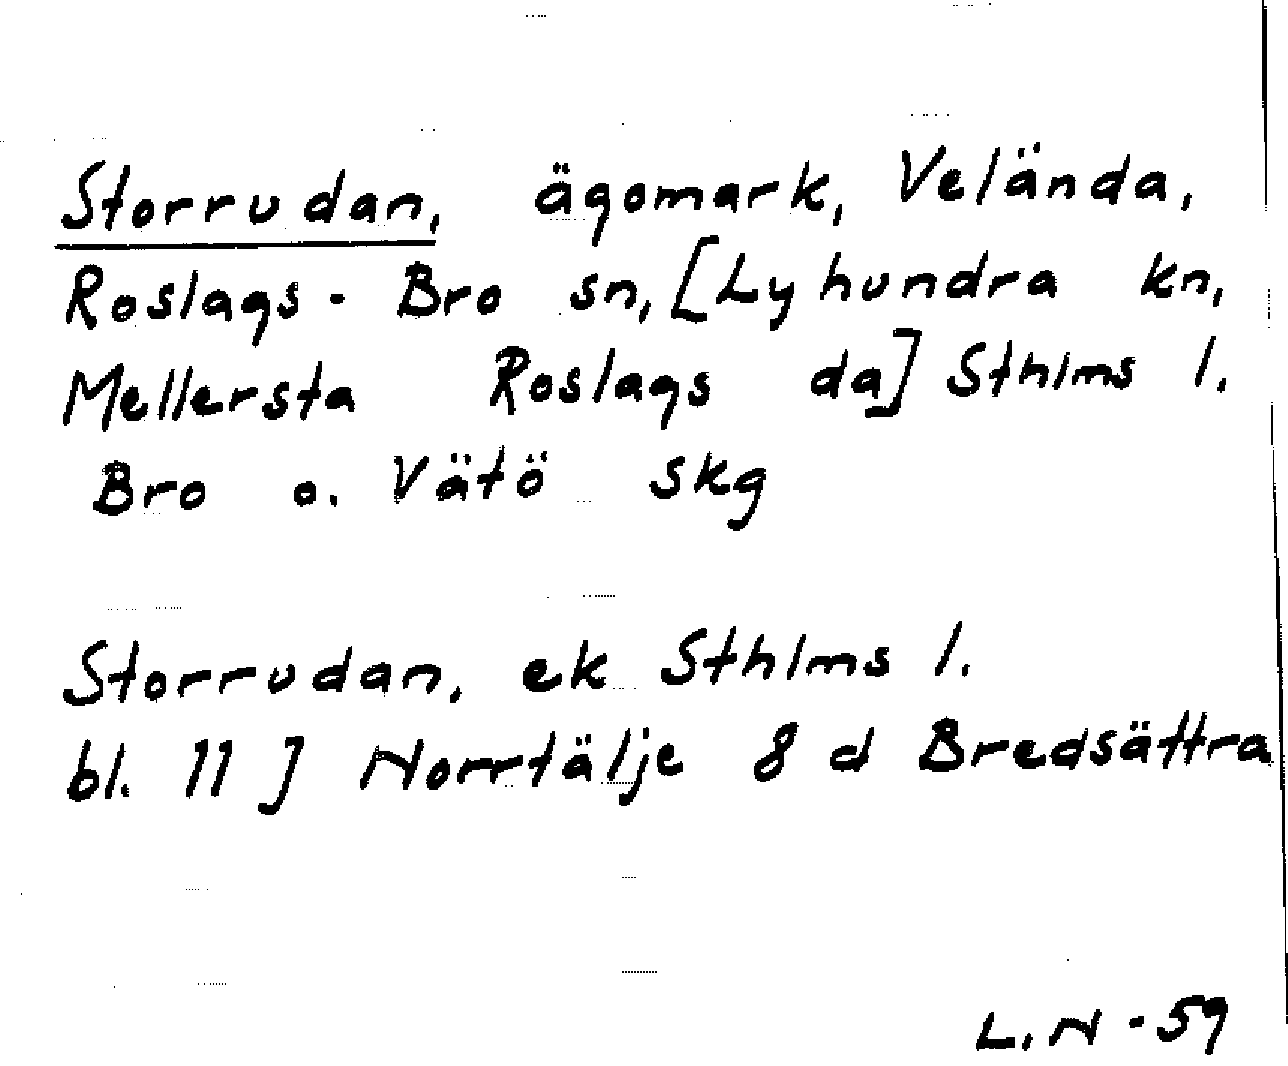 Storrudan, ägomark, Velända,
Roslags-Bro sn, [Lyhundra kn,
Mellersta Roslags da] Sthlms l.
Bro o. Vätö skg
Storrudan, ek Sthlms l.
bl. 11 J Norrtälje 8 d Bredsättra
L. N - 59